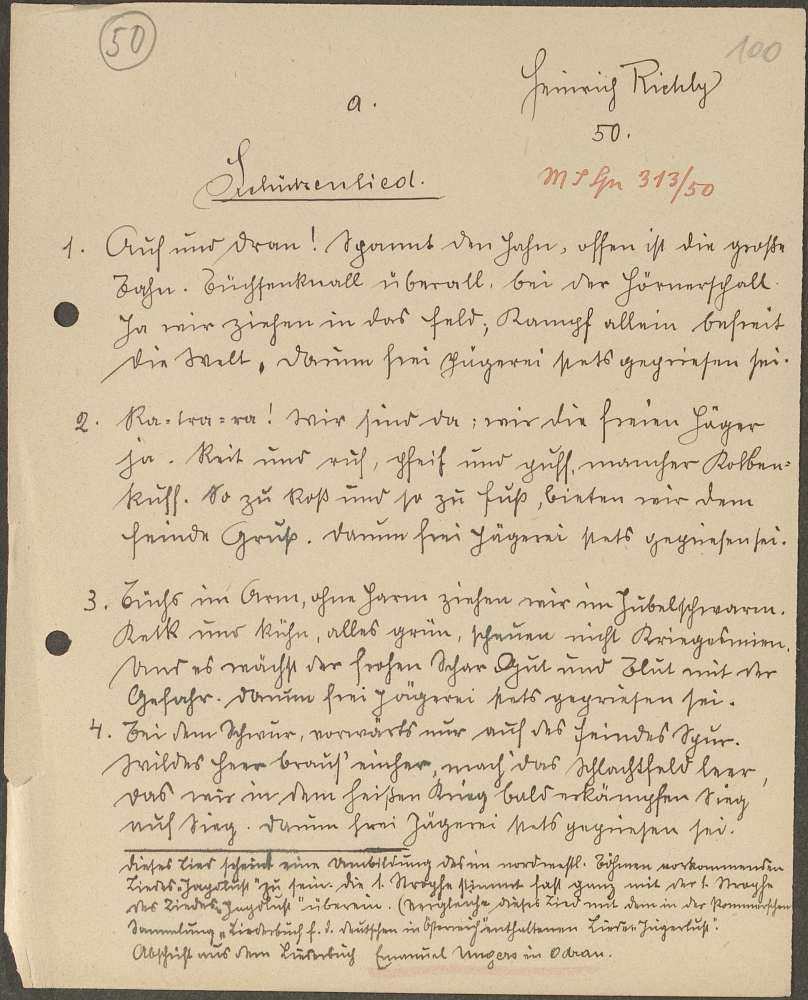 50
100
Heinrich Richly
a.
50.
Schützenlied.
313/50
1. Auf und dran! Spannt den Hahn, offen ist die große
Bahn. Büchsenknall überall, bei der Hörnerschall.
Ja wir ziehen in das Feld; Kampf allein befreit
die Welt, darum frei Jägerei stets gepriesen sei.
2. Ra-tra-ra! Wir sind da; wir die freien Jäger
ja. Reit und ruf, pfeif und puff, mancher Kolben-
kuff. So zu Roß und so zu Fuß, bieten wir dem
Feinde Gruß. Darum frei Jägerei stets gepriesen sei.
3. Büchs im Arm, ohne Harm ziehen wir im Jubelschwarm.
Keck und kühn, alles grün, scheuen nicht Kriegesmien.
Und es wächst der frohen Schar Gut und Blut mit der
Gefahr. Darum frei Jägerei stets gepriesen sei.
4. Bei dem Schwur, vorwärts nur auf des Feindes Spur.
Wildes Heer braus' einher, mach' das Schlachtfeld leer,
das wir in dem heißen Krieg bald erkämpfen Sieg
auf Sieg. Darum frei Jägerei stets gepriesen sei.
Dieses Lied scheint eine Umbildung des im nordwestl. Böhmen vorkommenden
Liedes "Jagdlust" zu sein. Die 1. Strophe stimmt fast ganz mit der 1. Strophe
des Liedes "Jagdlust" überein. (Vergleiche dieses Lied mit dem in der Pommerschen
Sammlung "Liederbuch f. d. Deutschen in Österreich" enthaltenen Lieder Jägerlust".
Abschrift aus dem Liederbuch Emanuel Ungers in Odrau.